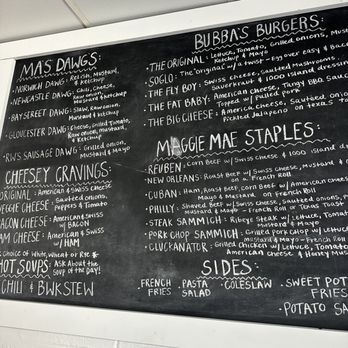 MA'S DAWGS:
• NORWICH DAWG: Relish, Mustard, & Ketchup
• NEWCASTLE DAWG: Chili, Cheese, Raw onion, Mustard & Ketchup
• BAY STREET DAWG: Slaw, Raw onion, Mustard & Ketchup
• GLOUCESTER DAWG: Cheese, grilled Tomato, Raw onion, mustard, & Ketchup
• RW'S SAUSAGE DAWG: Grilled onion, Mustard & Mayo
CHEESEY CRAVINGS:
ORIGINAL: American & Swiss Cheese
VEGGIE CHEESE: Sauteed onion, Peppers & Tomato
BACON CHEESE: American & Swiss w/ BACON
HAM CHEESE: American & Swiss w/ HAM
choice of White, Wheat or Rye
HOT SOUPS: Ask About the soup of the day!
CHILI & BWKSTEW
BUBBA'S BURGERS:
• THE ORIGINAL: Lettuce, Tomato, Grilled onions, Ketchup & Mayo
• SOGLO: The "original" w/ a twist - Egg over easy & Bacon
• THE FLY BOY: Swiss cheese, Sauteed Mushrooms, Sauerkraut & 1000 island dressing
• THE FAT BABY: American Cheese, Tangy BBQ Sauce Topped w/ pulled pork
• THE BIG CHEESE: America Cheese, Sauteed onion, Pickled Jalapeno on Texas
MAGGIE MAE STAPLES:
REUBEN: Corn Beef w/ Swiss Cheese & 1000 island
NEW ORLEANS: Roast Beef w/ Swiss Cheese, Mustard & on French Roll
• CUBAN: Ham, Roast beef, Corn beef w/ American cheese, Mayo & Mustard on French Roll
• PHILLY: Shaved Beef w/ Swiss cheese, Sauteed onions, Mustard & Mayo - French Roll or Texas Toast
• STEAK SAMMICH: Ribeye Steak w/ Lettuce, Tomato, Mustard & Mayo
• PORK CHOP SAMMICH: Grilled Pork chop w/ Lettuce, Mustard & Mayo - French Roll
• CLUCKANATOR: Grilled Chicken w/ Lettuce, Tomato, American Cheese & Honey Must
SIDES:
FRENCH FRIES
PASTA SALAD
COLESLAW
SWEET POTATO FRIES
POTATO SA